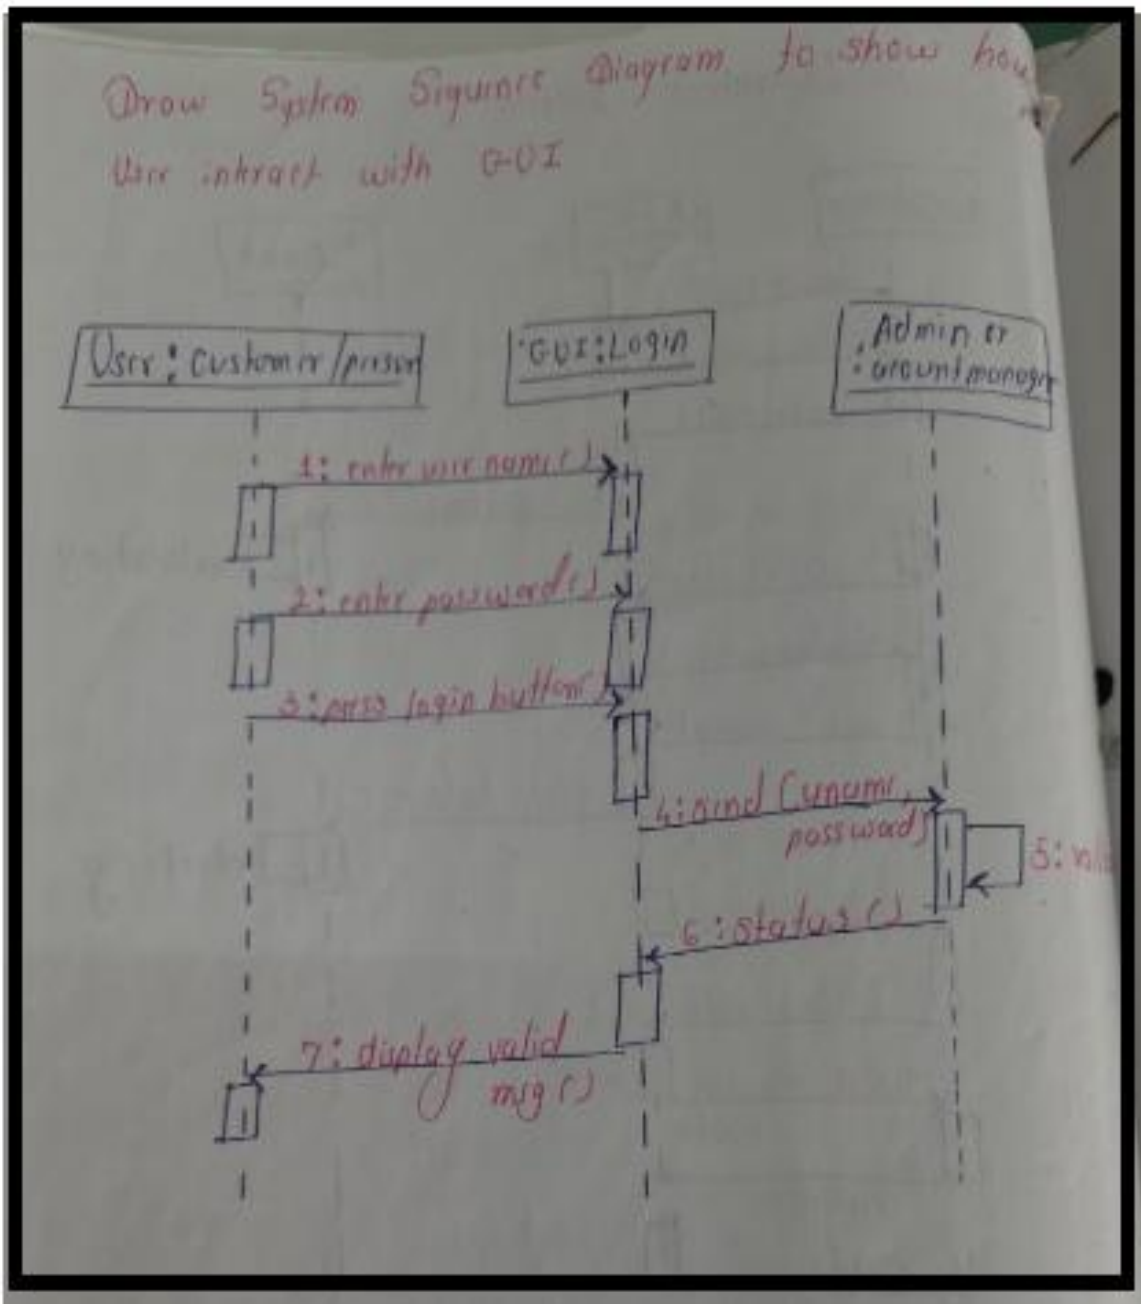 Draw System Squence Diagram to show how
User intract with GUI
User : customer/person
:GUI:Login
: Admin or
: account manager
1: enter user name()
2: enter password()
3: press login button()
4: send (uname,
password)
5:
6: status()
7: display valid
msg()